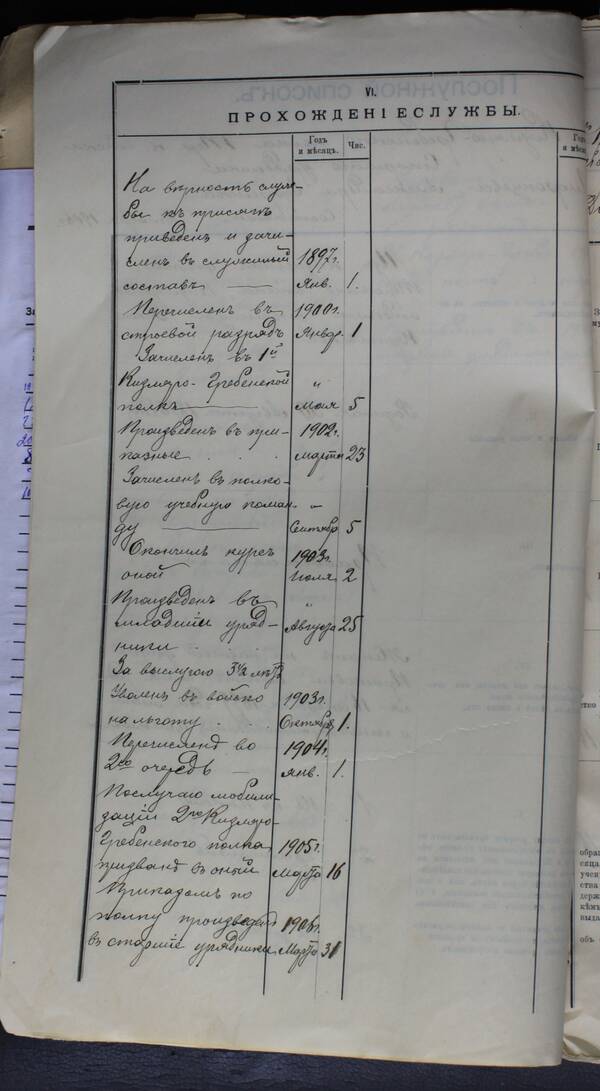 VI.
ПРОХОЖДЕНІ ЕСЛУЖБЫ.
Годъ и мѣсяцъ. Чис.
На вѣрность служ-
бы къ присягѣ
приведенъ и зачи-
сленъ въ служилый 1897 г.
составъ — Янв. 1.
Перечисленъ въ 1900 г.
строевой разрядъ Январ. 1
Зачисленъ въ 1й
Кизляро-Гребенской "
полкъ — Мая 5
Произведенъ въ при- 1902 г.
казные . . . Марта 23
Зачисленъ въ полко-
вую учебную коман- "
ду — Сентябр. 5
Окончилъ курсъ 1903 г.
оной Іюля 2
Произведенъ въ "
младшіе уряд- Августа 25
ники . .
За выслугою 3½ лѣтъ
уволенъ въ войско 1903 г.
на льготу . . . Октября 1.
Перечисленъ во 1904 г.
2ю очередь — Янв. 1.
По случаю мобили-
заціи 2го Кизляро-
Гребенского полка 1905 г.
призванъ въ оный Марта 16
Приказомъ по
полку произведенъ 1906 г.
въ старшіе урядники Марта 31